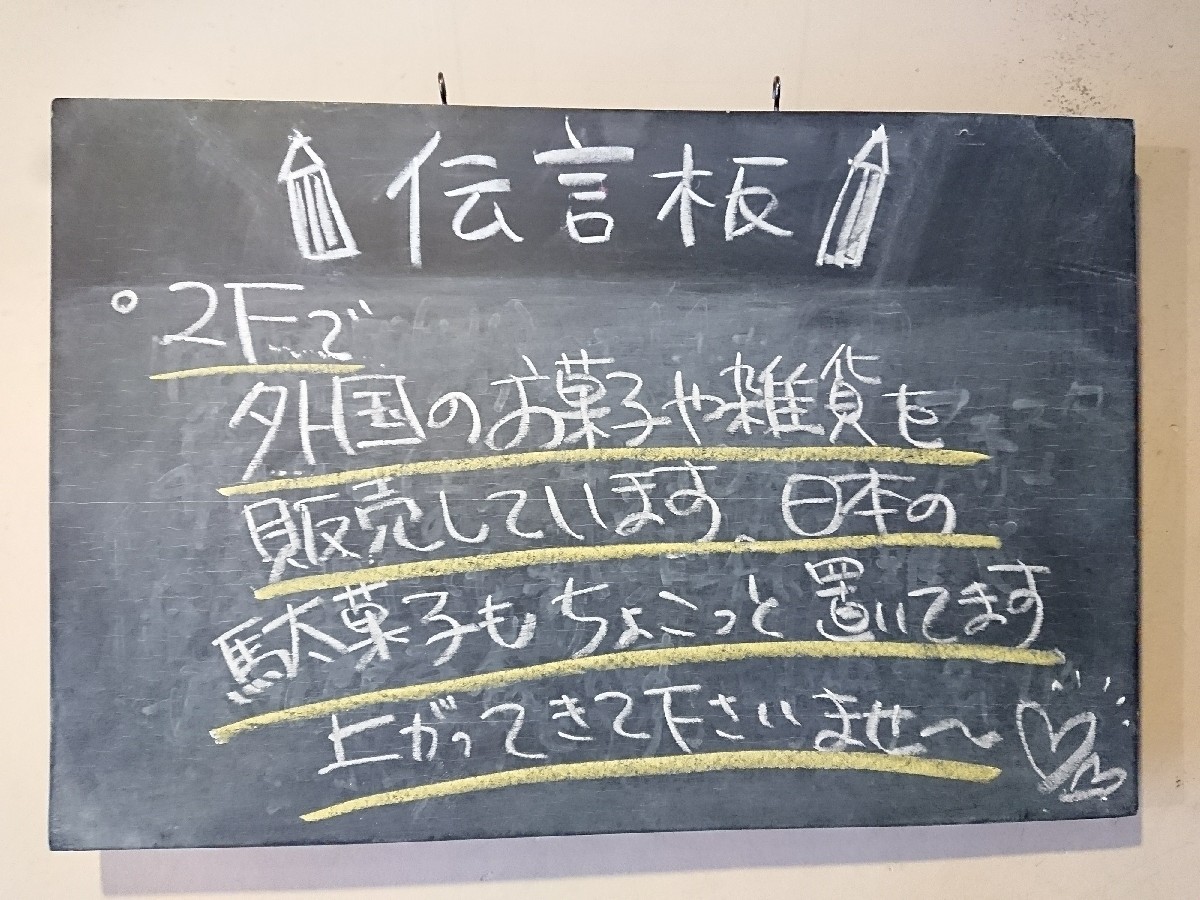 伝言板
。2Fで
外国のお菓子や雑貨を
販売しています。日本の
駄菓子もちょこっと置いてます
上がってきて下さいませ〜